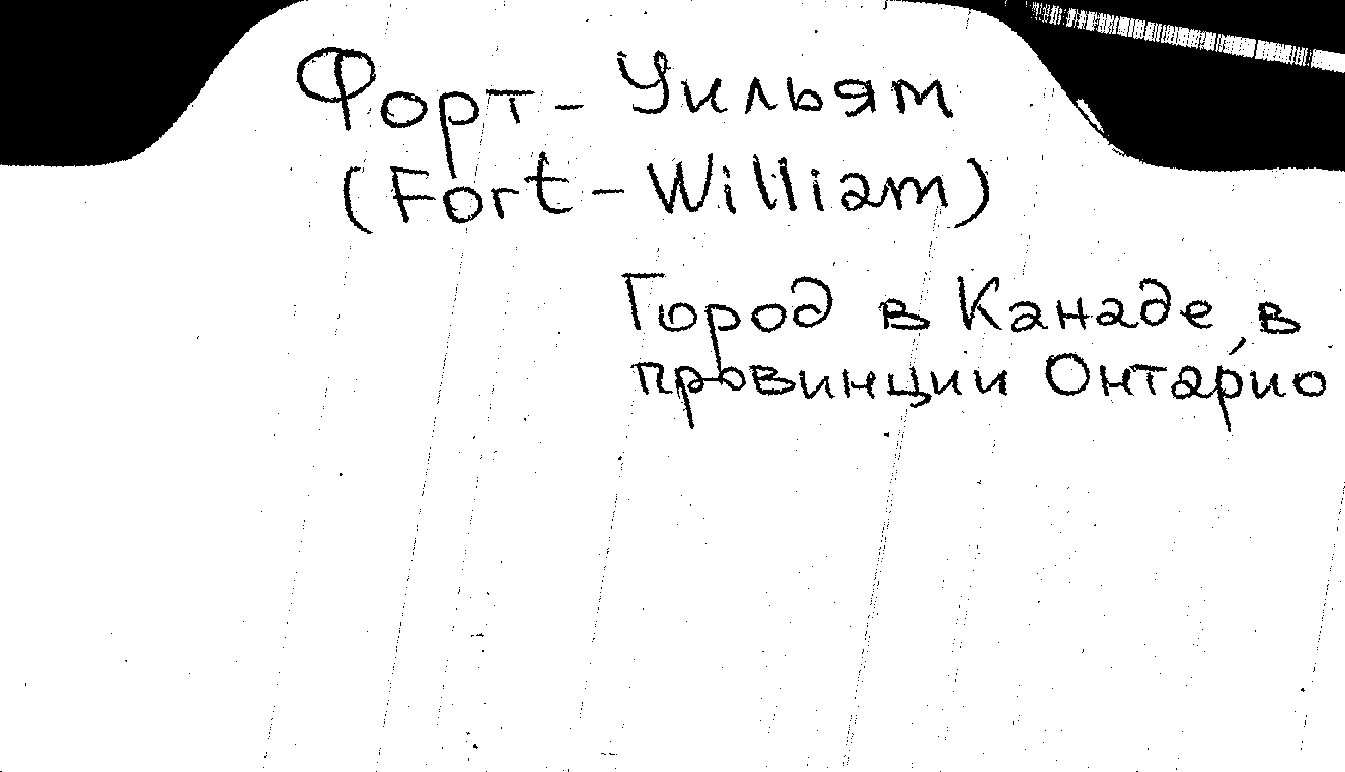 Форт-Уильям
(Fort-William)
Город в Канаде, в
провинции Онтарио